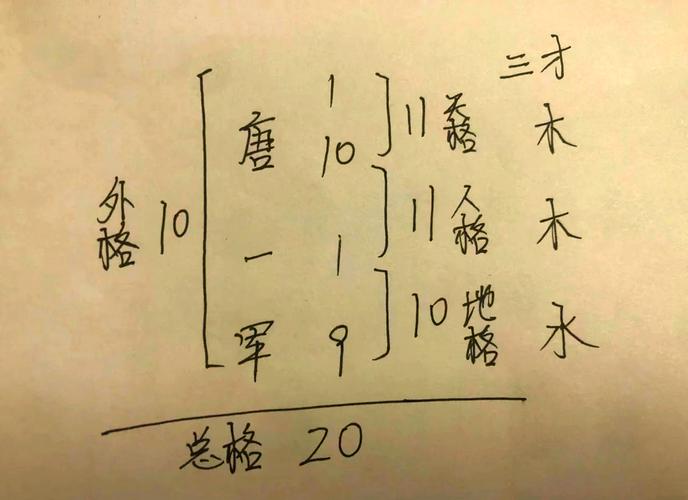 三才
1
唐 10 11 天格 木
外格 10
一 1 11 人格 木
军 9 10 地格 水
总格 20